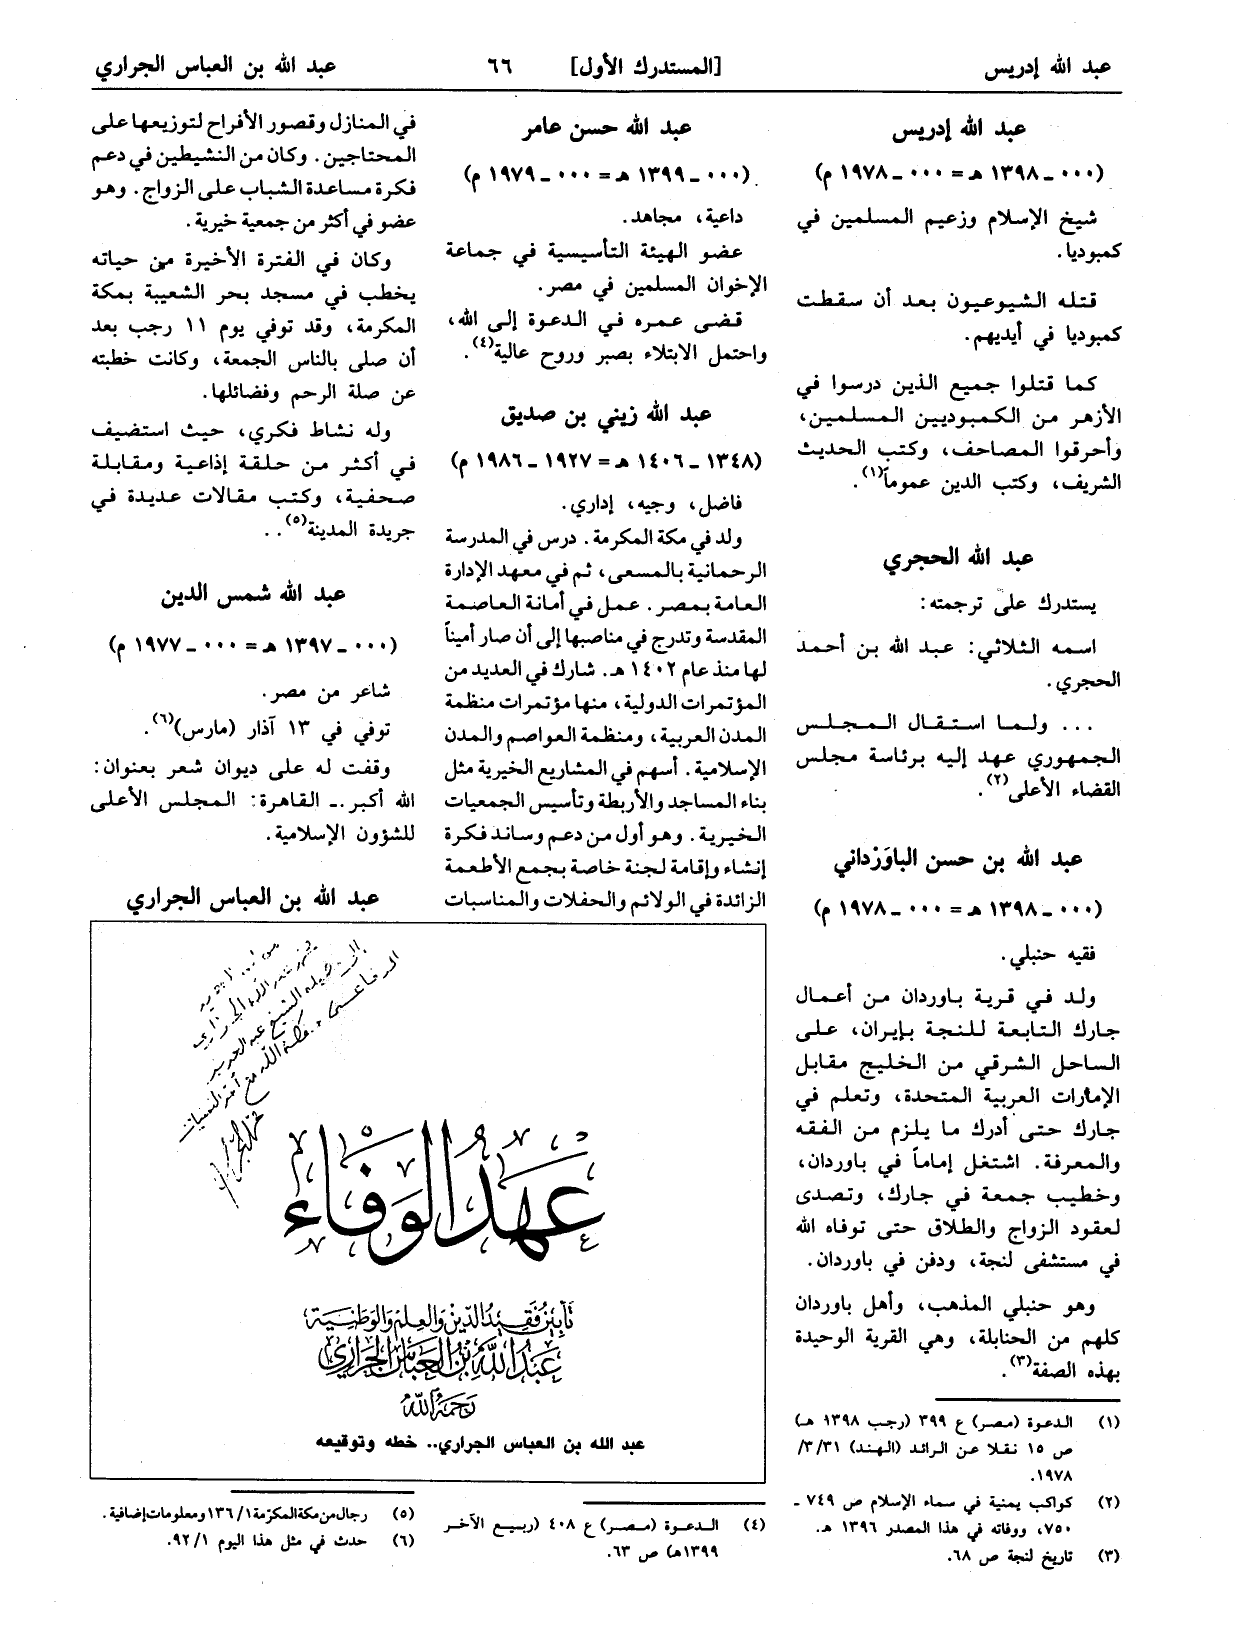 عبد الله إدريس [المستدرك الأول] ٦٦ عبد الله بن العباس الجراري
عبد الله إدريس
(٠٠٠ ـ ١٣٩٨ هـ = ٠٠٠ ـ ١٩٧٨ م)
شيخ الإسلام وزعيم المسلمين في
كمبوديا.
قتله الشيوعيون بعد أن سقطت
كمبوديا في أيديهم.
كما قتلوا جميع الذين درسوا في
الأزهر من الكمبوديين المسلمين،
وأحرقوا المصاحف، وكتب الحديث
الشريف، وكتب الدين عموماً(١).
عبد الله الحجري
يستدرك على ترجمته:
اسمه الثلاثي: عبد الله بن أحمد
الحجري.
... ولما استقال المجلس
الجمهوري عهد إليه برئاسة مجلس
القضاء الأعلى(٢).
عبد الله بن حسن الباوَرْداني
(٠٠٠ ـ ١٣٩٨ هـ = ٠٠٠ ـ ١٩٧٨ م)
فقيه حنبلي.
ولد في قرية باوردان من أعمال
جارك التابعة للنجة بإيران، على
الساحل الشرقي من الخليج مقابل
الإمارات العربية المتحدة، وتعلم في
جارك حتى أدرك ما يلزم من الفقه
والمعرفة. اشتغل إماماً في باوردان،
وخطيب جمعة في جارك، وتصدى
لعقود الزواج والطلاق حتى توفاه الله
في مستشفى لنجة، ودفن في باوردان.
وهو حنبلي المذهب، وأهل باوردان
كلهم من الحنابلة، وهي القرية الوحيدة
بهذه الصفة(٣).
(١) الدعوة (مصر) ع ٣٩٩ (رجب ١٣٩٨ هـ)
ص ١٥ نقلا عن الرائد (الهند) ٣/٣١/
١٩٧٨.
(٢) كواكب يمنية في سماء الإسلام ص ٧٤٩ ـ
٧٥٠، ووفاته في هذا المصدر ١٣٩٦ هـ.
(٣) تاريخ لنجة ص ٦٨.
عبد الله حسن عامر
(٠٠٠ ـ ١٣٩٩ هـ = ٠٠٠ ـ ١٩٧٩ م)
داعية، مجاهد.
عضو الهيئة التأسيسية في جماعة
الإخوان المسلمين في مصر.
قضى عمره في الدعوة إلى الله،
واحتمل الابتلاء بصبر وروح عالية(٤).
عبد الله زيني بن صديق
(١٣٤٨ ـ ١٤٠٦ هـ = ١٩٢٧ ـ ١٩٨٦ م)
فاضل، وجيه، إداري.
ولد في مكة المكرمة. درس في المدرسة
الرحمانية بالمسعى، ثم في معهد الإدارة
العامة بمصر. عمل في أمانة العاصمة
المقدسة وتدرج في مناصبها إلى أن صار أميناً
لها منذ عام ١٤٠٢ هـ. شارك في العديد من
المؤتمرات الدولية، منها مؤتمرات منظمة
المدن العربية، ومنظمة العواصم والمدن
الإسلامية. أسهم في المشاريع الخيرية مثل
بناء المساجد والأربطة وتأسيس الجمعيات
الخيرية. وهو أول من دعم وساند فكرة
إنشاء وإقامة لجنة خاصة بجمع الأطعمة
الزائدة في الولائم والحفلات والمناسبات
(٤) الدعوة (مصر) ع ٤٠٨ (ربيع الآخر
١٣٩٩هـ) ص ٦٣.
في المنازل وقصور الأفراح لتوزيعها على
المحتاجين. وكان من النشيطين في دعم
فكرة مساعدة الشباب على الزواج. وهو
عضو في أكثر من جمعية خيرية.
وكان في الفترة الأخيرة من حياته
يخطب في مسجد بحر الشعيبة بمكة
المكرمة، وقد توفي يوم ١١ رجب بعد
أن صلى بالناس الجمعة، وكانت خطبته
عن صلة الرحم وفضائلها.
وله نشاط فكري، حيث استضيف
في أكثر من حلقة إذاعية ومقابلة
صحفية، وكتب مقالات عديدة في
جريدة المدينة(٥)..
عبد الله شمس الدين
(٠٠٠ ـ ١٣٩٧ هـ = ٠٠٠ ـ ١٩٧٧ م)
شاعر من مصر.
توفي في ١٣ آذار (مارس)(٦).
وقفت له على ديوان شعر بعنوان:
الله أكبر.ـ القاهرة: المجلس الأعلى
للشؤون الإسلامية.
عبد الله بن العباس الجراري
عَهدُ الوَفَاء
تأبينُ فقيدُ الدّينِ والعِلمِ والوَطنيّة
عبدُ اللهِ بنُ العبّاسِ الجراري
رَحمهُ الله
عبد الله بن العباس الجراري.. خطه وتوقيعه
(٥) رجال من مكة المكرّمة ١٣٦/١ ومعلومات إضافية.
(٦) حدث في مثل هذا اليوم ٩٢/١.